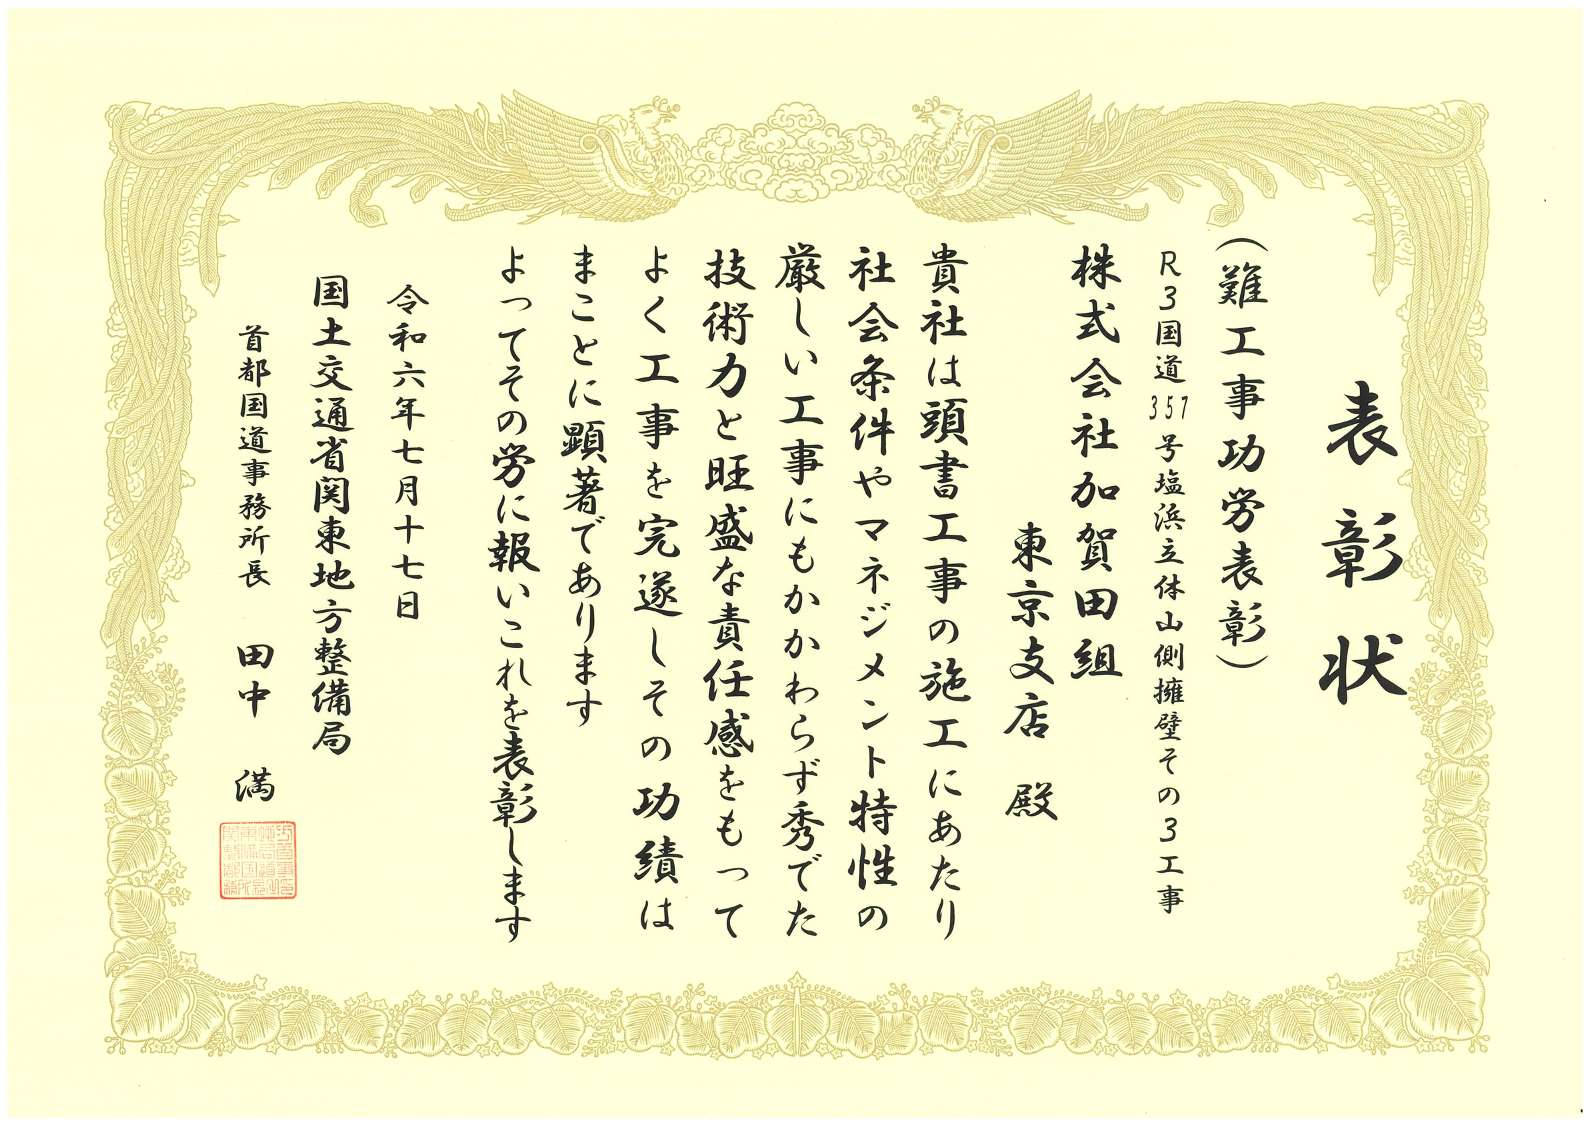 表彰状
(難工事功労表彰)
R3国道357号塩浜立体山側擁壁その3工事
株式会社加賀田組
東京支店 殿
貴社は頭書工事の施工にあたり
社会条件やマネジメント特性の
厳しい工事にもかかわらず秀でた
技術力と旺盛な責任感をもって
よく工事を完遂しその功績は
まことに顕著であります
よってその労に報いこれを表彰します
令和六年七月十七日
国土交通省関東地方整備局
首都国道事務所長 田中 満